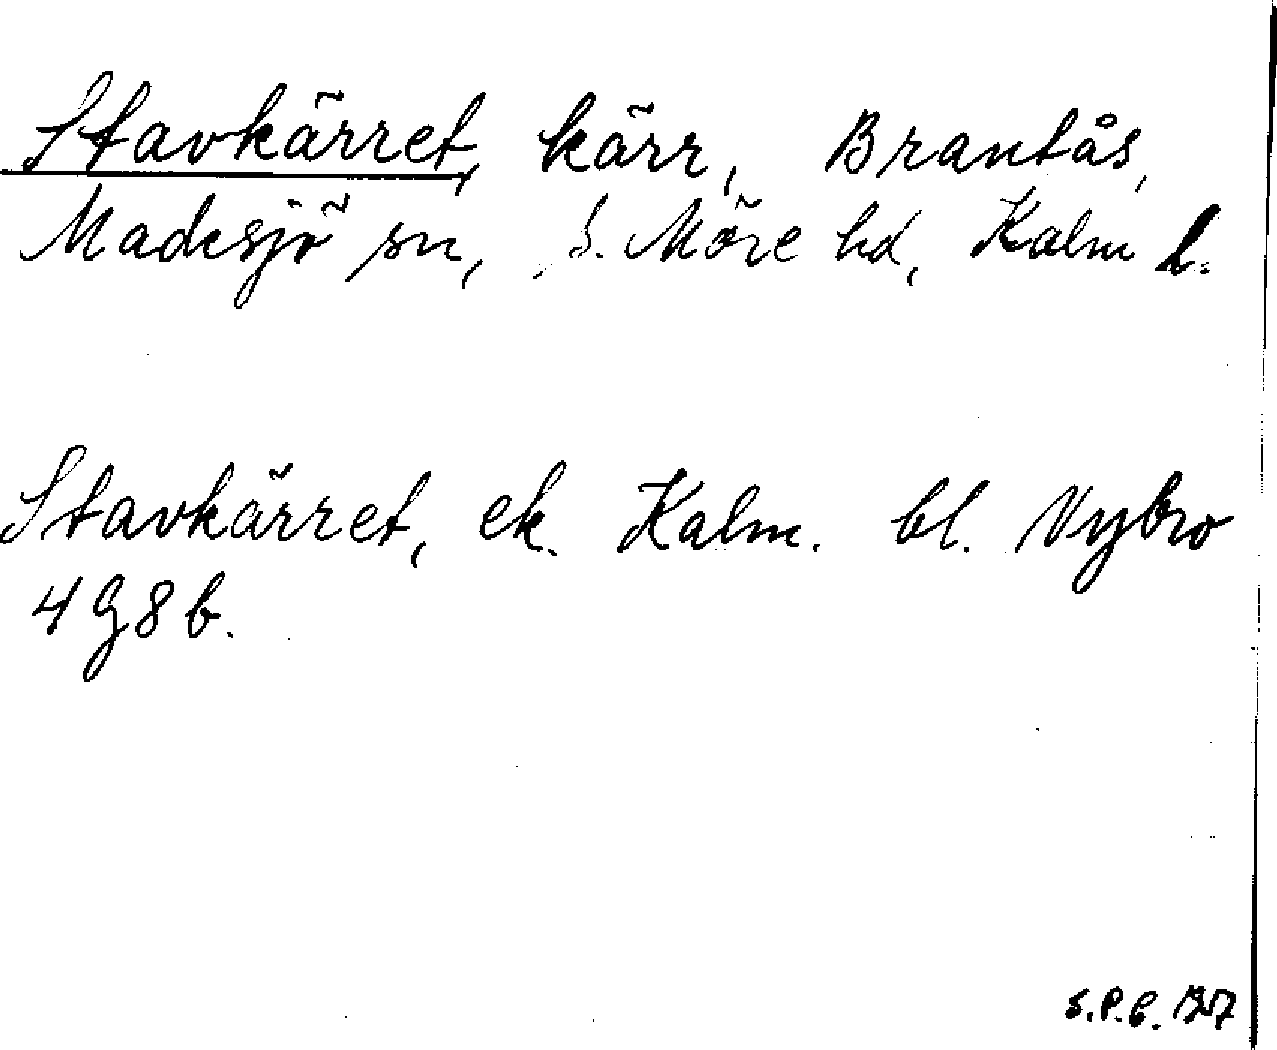 Stavkärret, kärr, Brantås,
Madesjö sn, S. Möre hd, Kalm l.
Stavkärret, ek. Kalm. bl. Nybro
4 G 8 b.
S.P.G. 1957